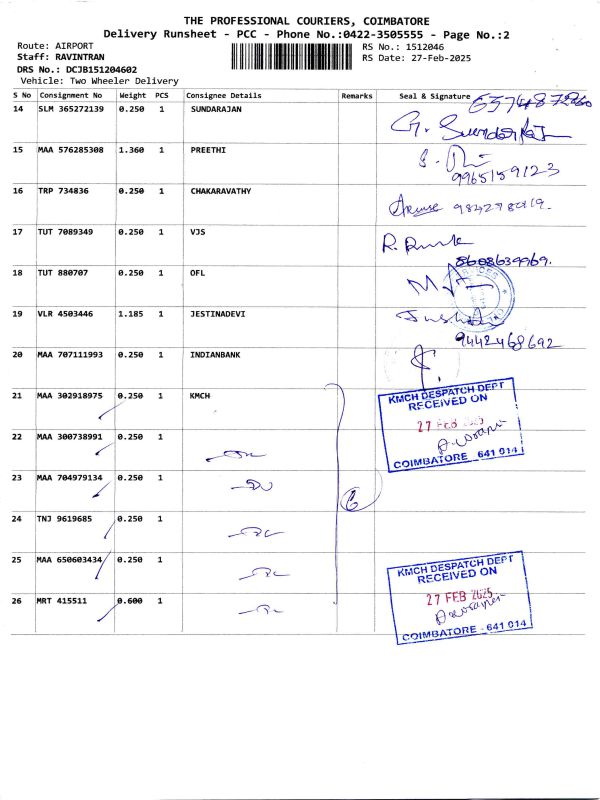 THE PROFESSIONAL COURIERS, COIMBATORE
Delivery Runsheet - PCC - Phone No.:0422-3505555 - Page No.:2
Route: AIRPORT RS No.: 1512046
Staff: RAVINTRAN RS Date: 27-Feb-2025
DRS No.: DCJB151204602
Vehicle: Two Wheeler Delivery
S No Consignment No Weight PCS Consignee Details Remarks Seal & Signature
14 SLM 365272139 0.250 1 SUNDARAJAN
15 MAA 576285308 1.360 1 PREETHI
9965159123
16 TRP 734836 0.250 1 CHAKARAVATHY
17 TUT 7089349 0.250 1 VJS
8608639969.
18 TUT 880707 0.250 1 OFL
19 VLR 4503446 1.185 1 JESTINADEVI
9442468692
20 MAA 707111993 0.250 1 INDIANBANK
21 MAA 302918975 0.250 1 KMCH
KMCH DESPATCH DEPT
RECEIVED ON
27 FEB 2025
COIMBATORE - 641 014
22 MAA 300738991 0.250 1
23 MAA 704979134 0.250 1
6
24 TNJ 9619685 0.250 1
25 MAA 650603434 0.250 1
KMCH DESPATCH DEPT
RECEIVED ON
27 FEB 2025
COIMBATORE - 641 014
26 MRT 415511 0.600 1